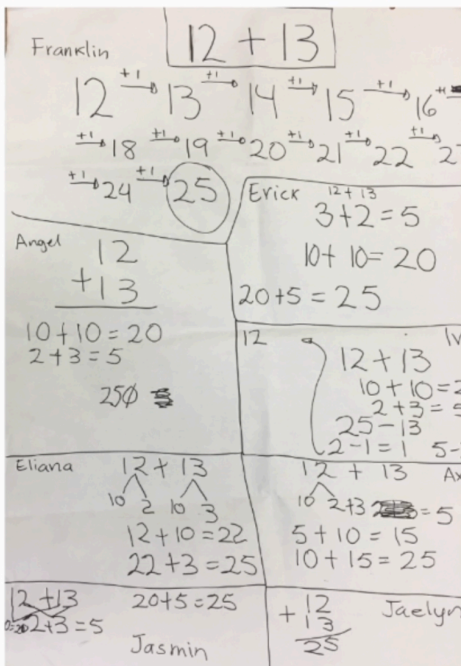 Franklin
12 + 13
12 +1→ 13 +1→ 14 +1→ 15 +1→ 16 +1
+1→ 18 +1→ 19 +1→ 20 +1→ 21 +1→ 22 +1→
+1→ 24 +1→ 25
Erick
12 + 13
3+2=5
10+ 10= 20
20+5=25
Angel
12
+13
10+10=20
2+3=5
12
12+13
10+10=
2+3=
25-13
2-1=1 5-
Eliana
12+13
10 2 10 3
12+10=22
22+3=25
12 + 13
10 2+3 =5
5+10=15
10+15=25
12+13
2+3=5
20+5=25
Jasmin
12
+13
25
Jaelyn